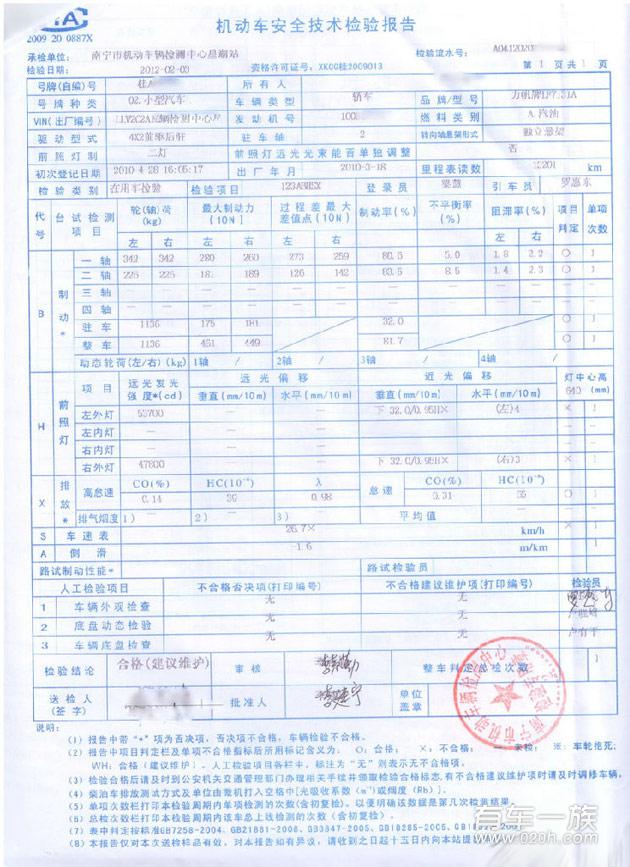 2009 20 0887X
机动车安全技术检验报告
承检单位: 南宁市机动车辆检测中心 检验流水号: A0412020
检验日期: 2012-02-09 资格许可证号: XKCG桂2009013 第 1 页 共 1 页
号牌(自编)号 所有人
号牌种类 02.小型汽车 车辆类型 轿车 品牌/型号
VIN(出厂编号) 发动机号 燃料类别 A.汽油
驱动型式 4X2 驻车轴 2 转向轴悬架形式 独立悬架
前照灯制 二灯 前照灯远光光束能否单独调整 否
初次登记日期 2010-4-28 16:05:17 出厂年月 2010-3-18 里程表读数 km
检验类别 在用车检验 检验项目 登录员 引车员 罗惠东
代号 台试检测项目 轮(轴)荷(kg) 最大制动力(10N) 过程差最大差值点(10N) 制动率(%) 不平衡率(%) 阻滞率(%) 项目判定 单项次数
左 右 左 右 左 右 左 右
B 制动* 一轴 342 342 280 260 273 259 80.5 5.0 1.8 2.2 ○ 1
二轴 225 225 181 189 126 142 83.5 8.5 1.4 2.3 ○ 1
三轴 — — — — — — — — — —
四轴 — — — — — — — — — —
驻车 1136 175 181 32.0 ○ 1
整车 1136 461 449 81.7 ○ 1
动态轮荷(左/右)(kg) 1轴 / 2轴 / 3轴 / 4轴 /
H 前照灯 项目 远光发光强度*(cd) 远光偏移 近光偏移 灯中心高
垂直(mm/10m) 水平(mm/10m) 垂直(mm/10m) 水平(mm/10m) 640 (mm)
左外灯 53700 — — 下 32.0/0.95H× (左)4 × 1
左内灯 — — — — —
右内灯 — — — — —
右外灯 47800 — — 下 32.0/0.95H× (右)3 × 1
X 排放* 高怠速 CO(%) HC(10⁻⁶) λ 怠速 CO(%) HC(10⁻⁶)
0.14 30 0.98 0.31 35 ○ 1
排气烟度 1) 2) 3) 平均值
S 车速表 26.7× km/h × 1
A 侧滑 -1.6 m/km 1
路试制动性能* 路试检验员
人工检验项目 不合格否决项(打印编号) 不合格建议维护项(打印编号) 检验员
1 车辆外观检查 无 无
2 底盘动态检验 无 无
3 车辆底盘检查 无 无
检验结论 合格(建议维护) 审核 整车判定总检次数 1
送检人(签字) 批准人 单位盖章
南宁市机动车辆检测中心
说明:
(1) 报告中带“*”项为否决项, 否决项不合格, 车辆检验不合格。
(2) 报告中项目判定栏及单项不合格指标后所用标记含义为: ○: 合格; ×: 不合格; —: 未检; ※: 车轮抱死;
WH: 合格(建议维护)。人工检验项目各栏中, 标注为“无”则表示无不合格项。
(3) 检验合格后请及时到公安机关交通管理部门办理相关手续并领取检验合格标志, 有不合格建议维护项时请及时调修车辆。
(4) 柴油车排放测试方式及单位由微机打入空格中[光吸收系数(m⁻¹)或烟度(Rb)]。
(5) 单项次数栏打印本检验周期内单项检测的次数(含初复检)。以便明确该数据是第几次检测结果。
(6) 总检次数栏打印本检验周期内该车总上线检测的次数(含初复检)。
(7) 表中判定按标准GB7258-2004、GB21861-2008、GB3847-2005、GB18285-2005、
(8) 本报告仅对本次送检样品有效, 对本报告如有异议, 请到检之日起十五日内向本站提
有车一族
www.020h.com